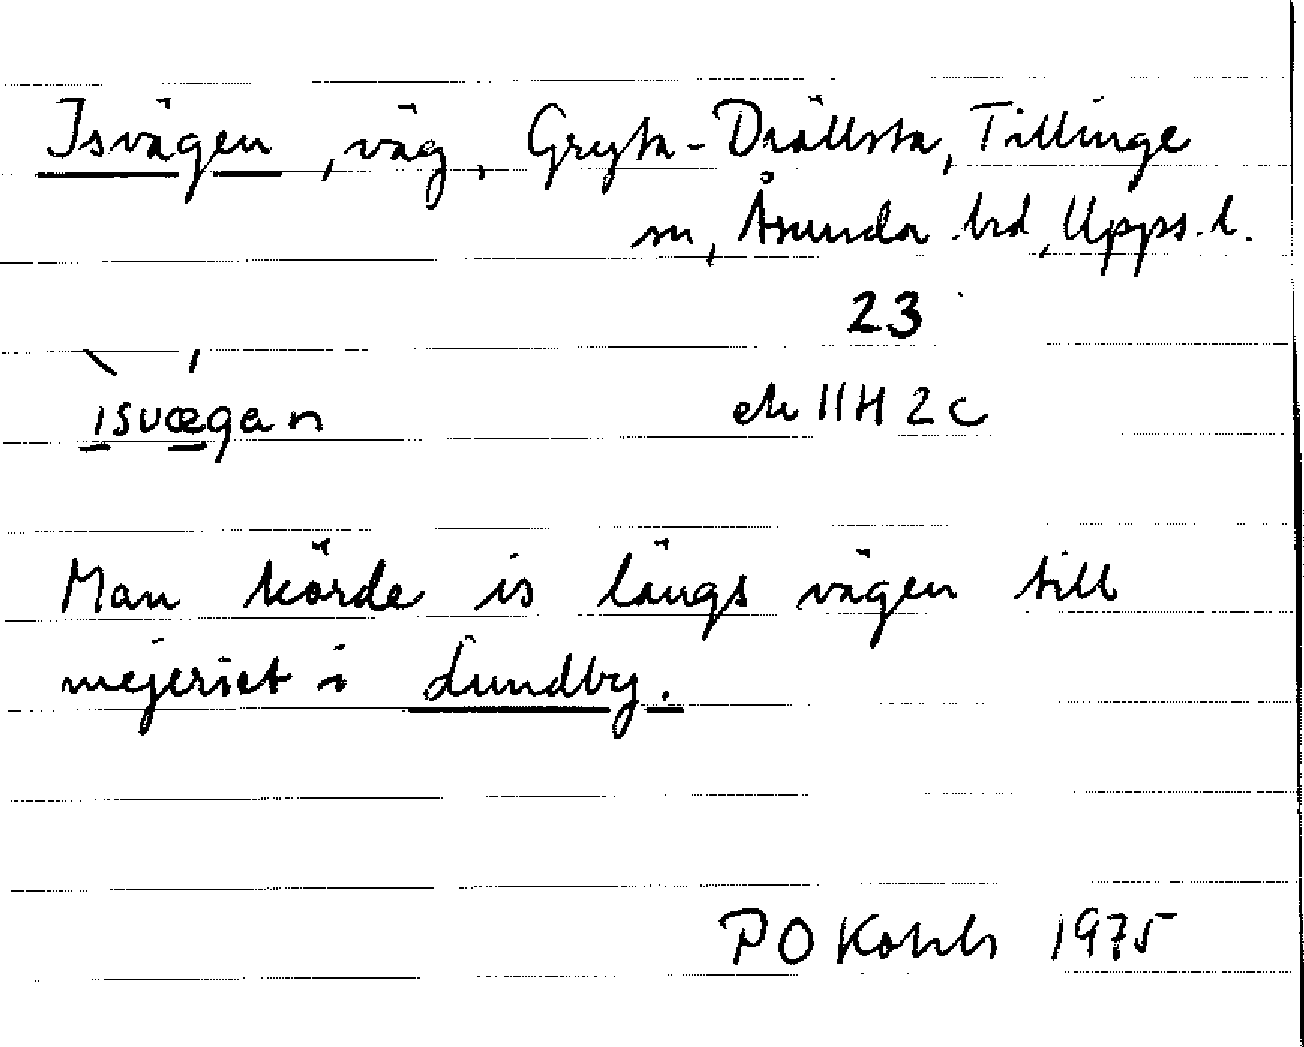 Isvägen, väg, Gryta-Drällsta, Tillinge
sn, Åsunda hd, Upps. l.
23
isvægan
ek 11H 2c
Man körde is längs vägen till
mejeriet i Lundby.
P O 1975